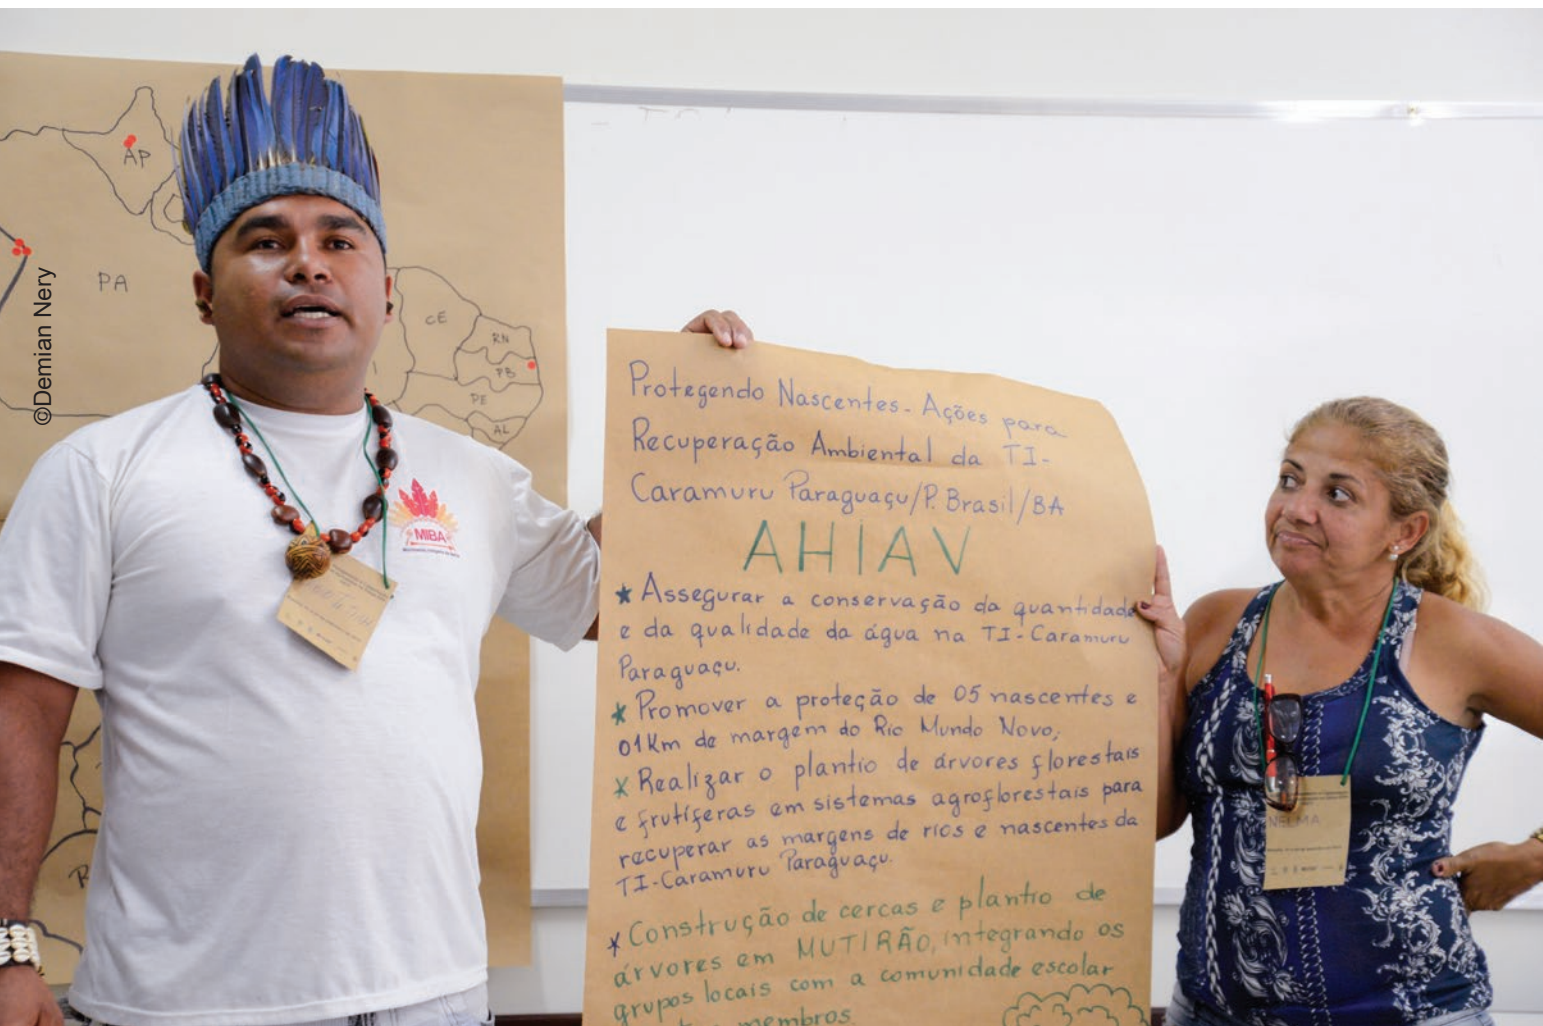 ©Demian Nery
AP
PA
CE
RN
PB
PE
AL
MIBA
Protegendo Nascentes - Ações para
Recuperação Ambiental da TI-
Caramuru Paraguaçu/P. Brasil/BA
AHIAV
★ Assegurar a conservação da quantidade
e da qualidade da água na TI-Caramuru
Paraguaçu.
★ Promover a proteção de 05 nascentes e
01Km de margem do Rio Mundo Novo;
★ Realizar o plantio de árvores florestais
e frutíferas em sistemas agroflorestais para
recuperar as margens de rios e nascentes da
TI-Caramuru Paraguaçu.
★ Construção de cercas e plantio de
árvores em MUTIRÃO, integrando os
grupos locais com a comunidade escolar
membros
NELMA